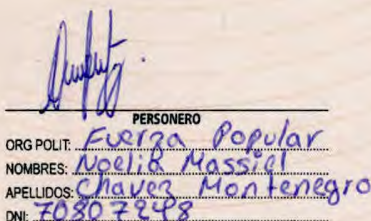 PERSONERO
ORG POLIT: Fuerza Popular
NOMBRES: Noelia Massiel
APELLIDOS: Chavez Montenegro
DNI: 70807298